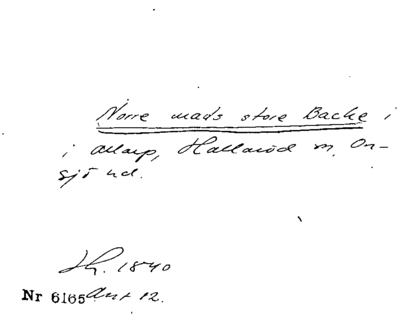 Norre mads store Backe i
i Allarp, Hallaröd sn, On-
sjö hd.
Jh. 1840
Nr 6165 Ant 12.